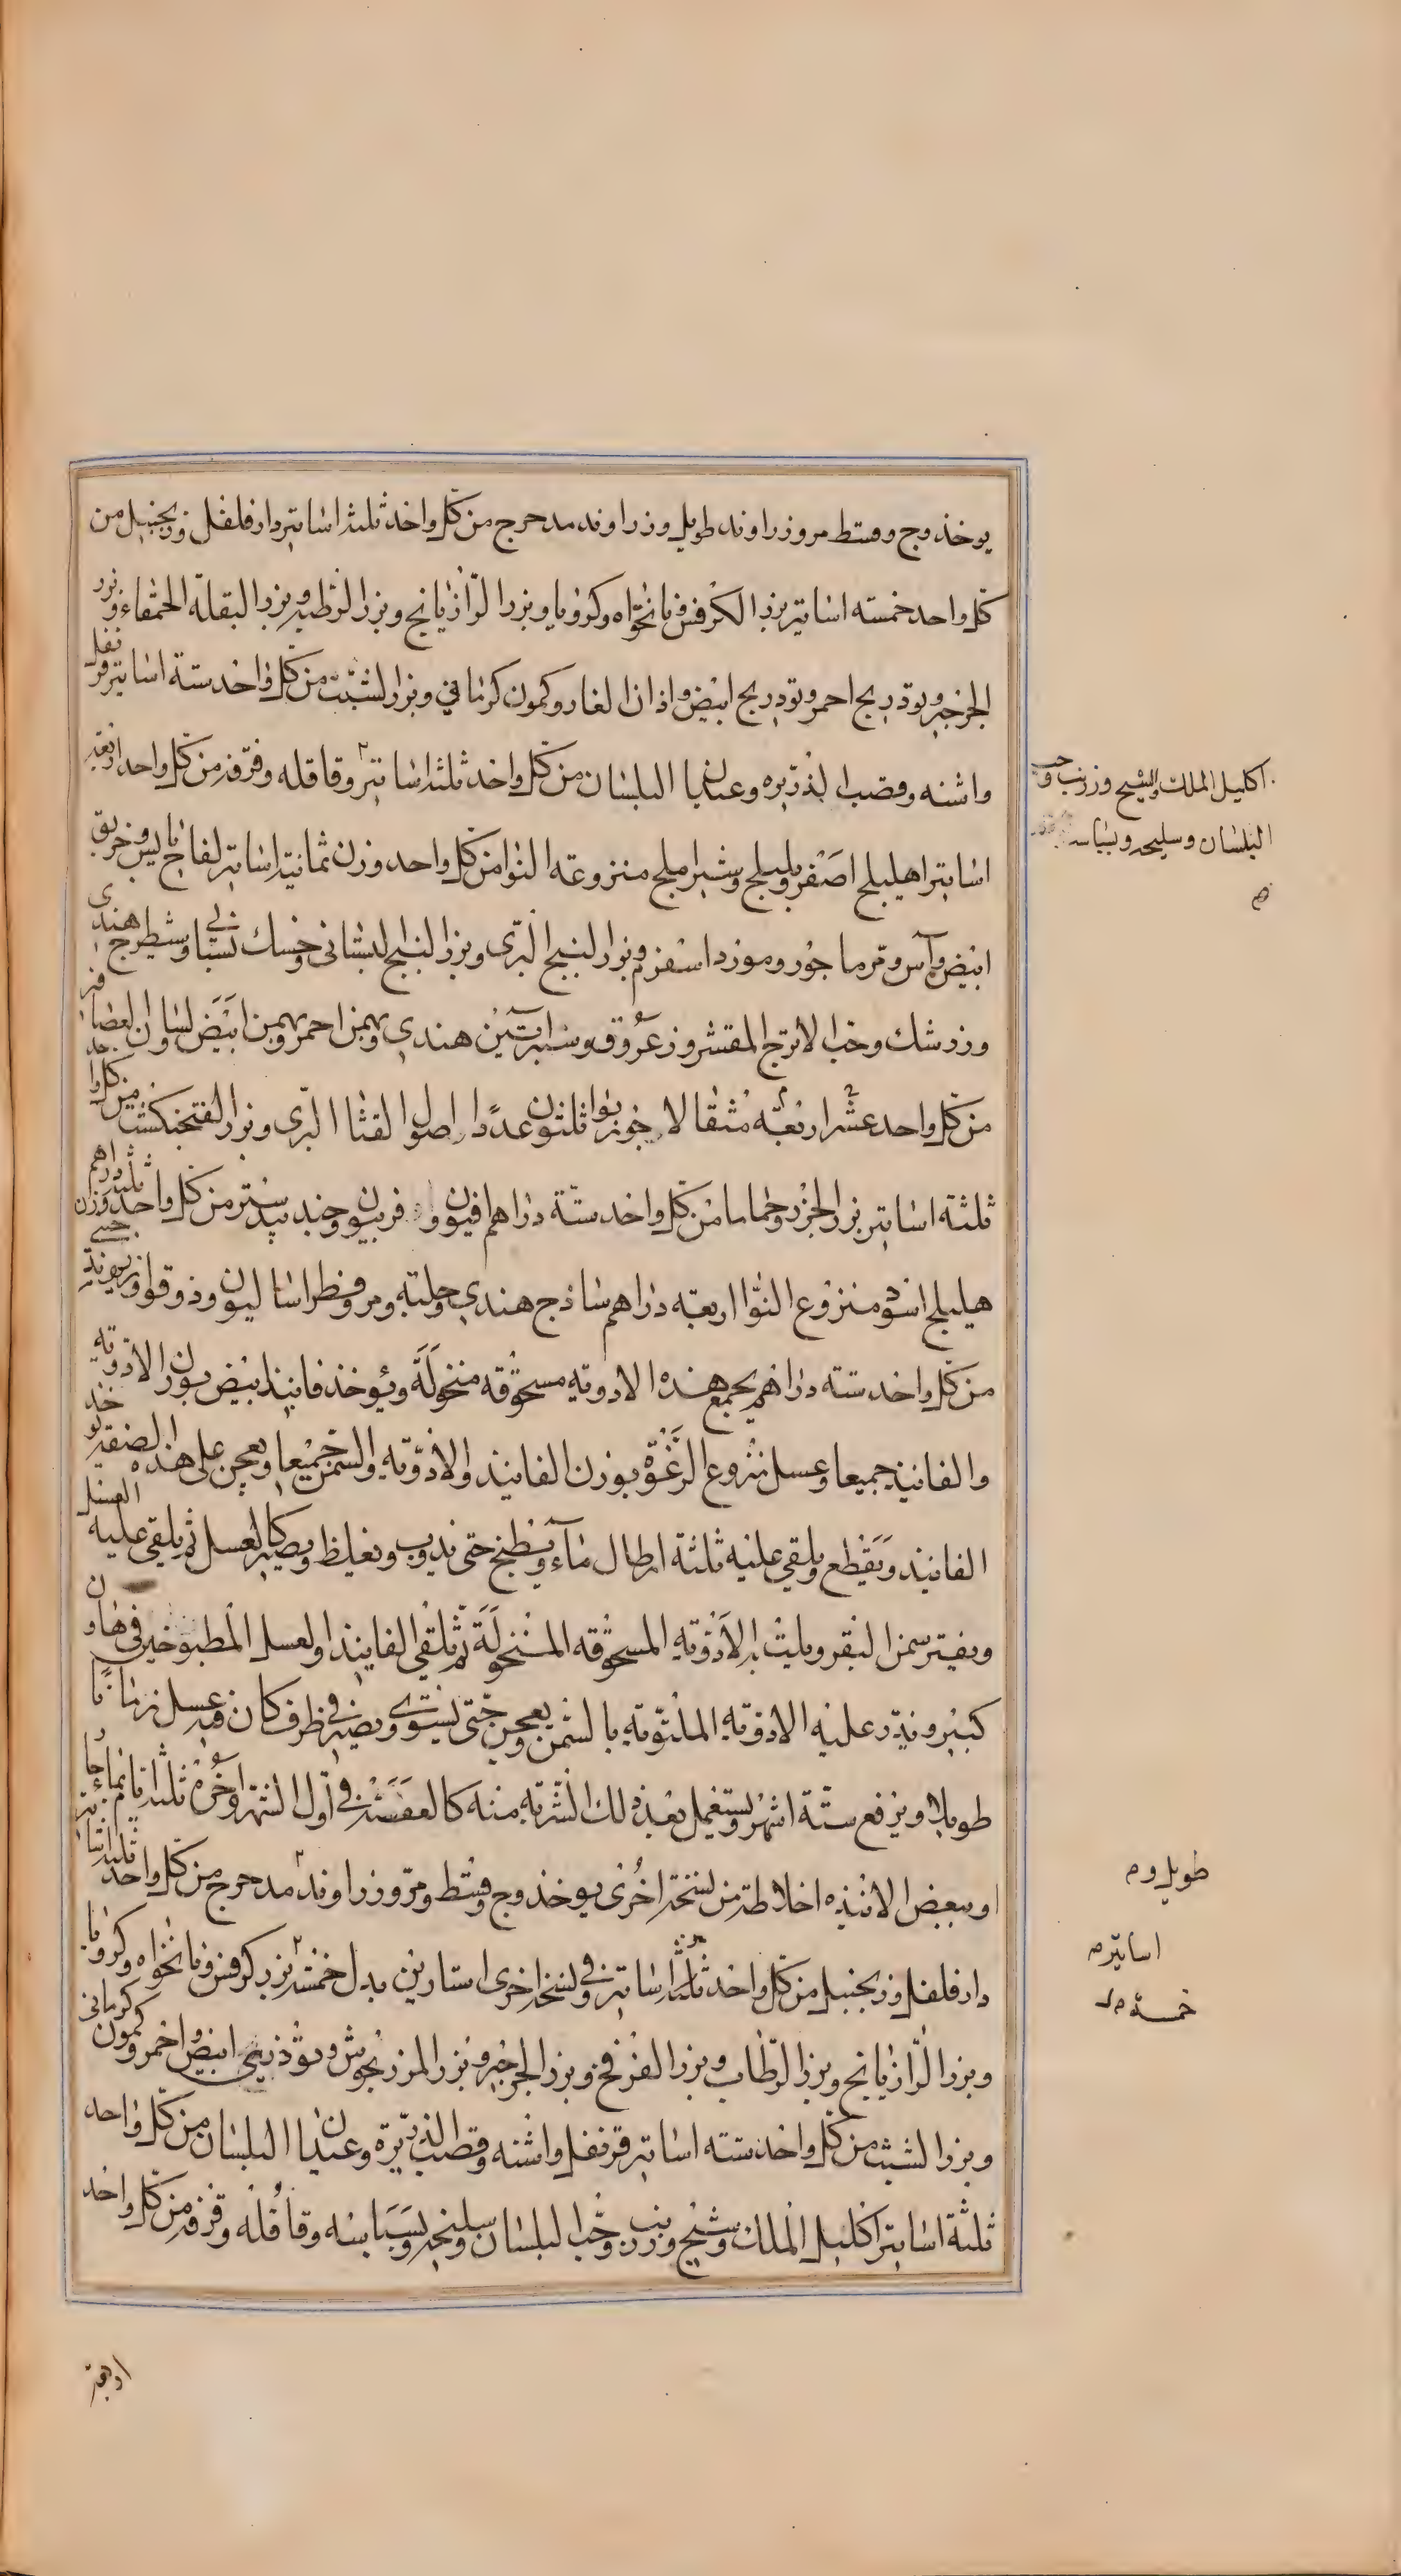 يوخذ وج وقسط مر وزراوند طويل وزراوند مدحرج من كل واحد ثلثة اساتير دارفلفل وزنجبيل من
كل واحد خمسته اساتير بزر الكرفس ونانخواه وكرويا وبزر الرازيانج وبزر الرطبه وبزر البقلة الحمقاء وبزر
الجرجير وتودريج احمر وتودريج ابيض واذان الفار وكمون كرماني وبزر الشبث من كل واحد ستة اساتير قرنفل
واشنه وقصب الذريره وعيدان البلسان من كل واحد ثلثة اساتير وقاقله وقرفه من كل واحد اربعة
اساتير اهليلج اصفر وبليلج وشير املج منزوعة النوا من كل واحد وزن ثمانية اساتير لفاح يابس وخربق
ابيض وآس وترما جوز وموزد اسفرم وبزر البنج البري وبزر البنج البستاني وحسك وشيطرج هندي
وزرشك وحب الاترج المقشر وزعروق هندي وبهمن احمر وبهمن ابيض ولسان العصافير
من كل واحد عشر اربعة مثقالا جوزبوا ثلثون عددا اصول القثاء البري وبزر الفنجنكشت من كل واحد
ثلثة اساتير بزر الجزر وحماما من كل واحد ستة دراهم افيون وافربيون وجندبيدستر من كل واحد وزن ثلثة دراهم
هليلج اسود منزوع النوا اربعة دراهم ساذج هندي وحلتيت ومر وفطراساليون وذوقوا
من كل واحد ستة دراهم يجمع هذه الادويه مسحوقه منخولة ويوخذ فانيذ ابيض بوزن الادويه
والفانيذ جميعا وعسل منزوع الرغوة بوزن الفانيذ والادوية والسمن جميعا ويعجن على هذه الصفة يوخذ
الفانيذ ويقطع ويلقى عليه ثلثة ارطال ماء ويطبخ حتى يذوب ويغلظ ويصير كالعسل ثم يلقى عليه العسل
ويفتر سمن البقر ويلت به الادوية المسحوقه المنخولة ثم يلقى الفانيذ والعسل المطبوخين في هاون
كبير ويذر عليه الادوية الملتوتة بالسمن ويعجن حتى يستوي ويصير في ظرف كان فيه عسل زمانا
طويلا ويرفع ستة اشهر ويستعمل بعد ذلك الشربة منه كالعفصة في اول الشهر واخره ثلثة ايام بماء حار
او ببعض الانبذه اخلاطه من نسخة اخرى يوخذ وج وقسط ومر وزراوند مدحرج من كل واحد ثلثة اساتير
دارفلفل وزنجبيل من كل واحد ثلثة اساتير وفي نسخة اخرى استارين بدل خمسة بزر كرفس ونانخواه وكرويا
وبزر الرازيانج وبزر الرطاب وبزر الفرفخ وبزر الجرجير وبزر المرزنجوش وتوذريج ابيض واحمر وكمون كرماني
وبزر الشبث من كل واحد ستته اساتير قرنفل واشنه وقصب الذريرة وعيدان البلسان من كل واحد
ثلثة اساتير اكليل الملك وشيح وزرنب وحب البلسان وسليخه وبسباسه وقاقله وقرفه من كل واحد
اكليل الملك والشيح وزرنب وحب
البلسان وسليخه وبسباسه
طويل وم
اساتير م
خمسة م
اربعة